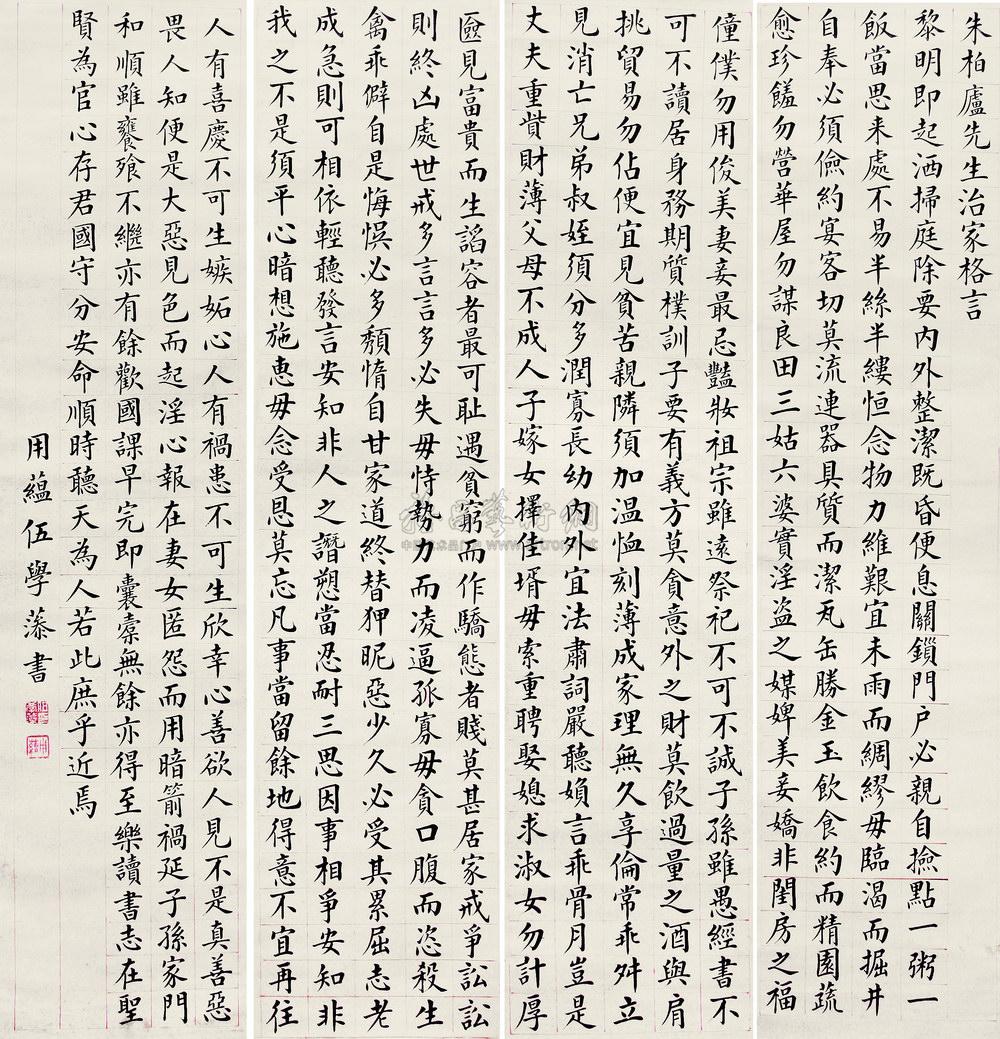 朱柏廬先生治家格言
黎明即起洒掃庭除要内外整潔既昏便息關鎖門户必親自撿點一粥一
飯當思来處不易半絲半縷恒念物力維艱宜未雨而綢繆毋臨渴而掘井
自奉必須儉約宴客切莫流連器具質而潔瓦缶勝金玉飲食約而精園蔬
愈珍饈勿營華屋勿謀良田三姑六婆實淫盗之媒婢美妾嬌非閨房之福
僮僕勿用俊美妻妾最忌豔妝祖宗雖遠祭祀不可不誠子孫雖愚經書不
可不讀居身務期質樸訓子要有義方莫貪意外之財莫飲過量之酒與肩
挑貿易勿佔便宜見貧苦親隣須加温恤刻薄成家理無久享倫常乖舛立
見消亡兄弟叔姪須分多潤寡長幼内外宜法肅詞嚴聽媍言乖骨月豈是
丈夫重貲財薄父母不成人子嫁女擇佳壻毋索重聘娶媳求淑女勿計厚
匳見富貴而生諂容者最可耻遇貧窮而作驕態者賤莫甚居家戒爭訟訟
則終凶處世戒多言言多必失毋恃勢力而凌逼孤寡毋貪口腹而恣殺生
禽乖僻自是悔悞必多頽惰自甘家道終替狎昵惡少久必受其累屈志老
成急則可相依輕聽發言安知非人之譖愬當忍耐三思因事相爭安知非
我之不是須平心暗想施惠毋念受恩莫忘凡事當留餘地得意不宜再往
人有喜慶不可生嫉妬心人有禍患不可生欣幸心善欲人見不是真善惡
畏人知便是大惡見色而起淫心報在妻女匿怨而用暗箭禍延子孫家門
和順雖饔飧不繼亦有餘歡國課早完即囊橐無餘亦得至樂讀書志在聖
賢為官心存君國守分安命順時聽天為人若此庶乎近焉
用蘊伍學藻書